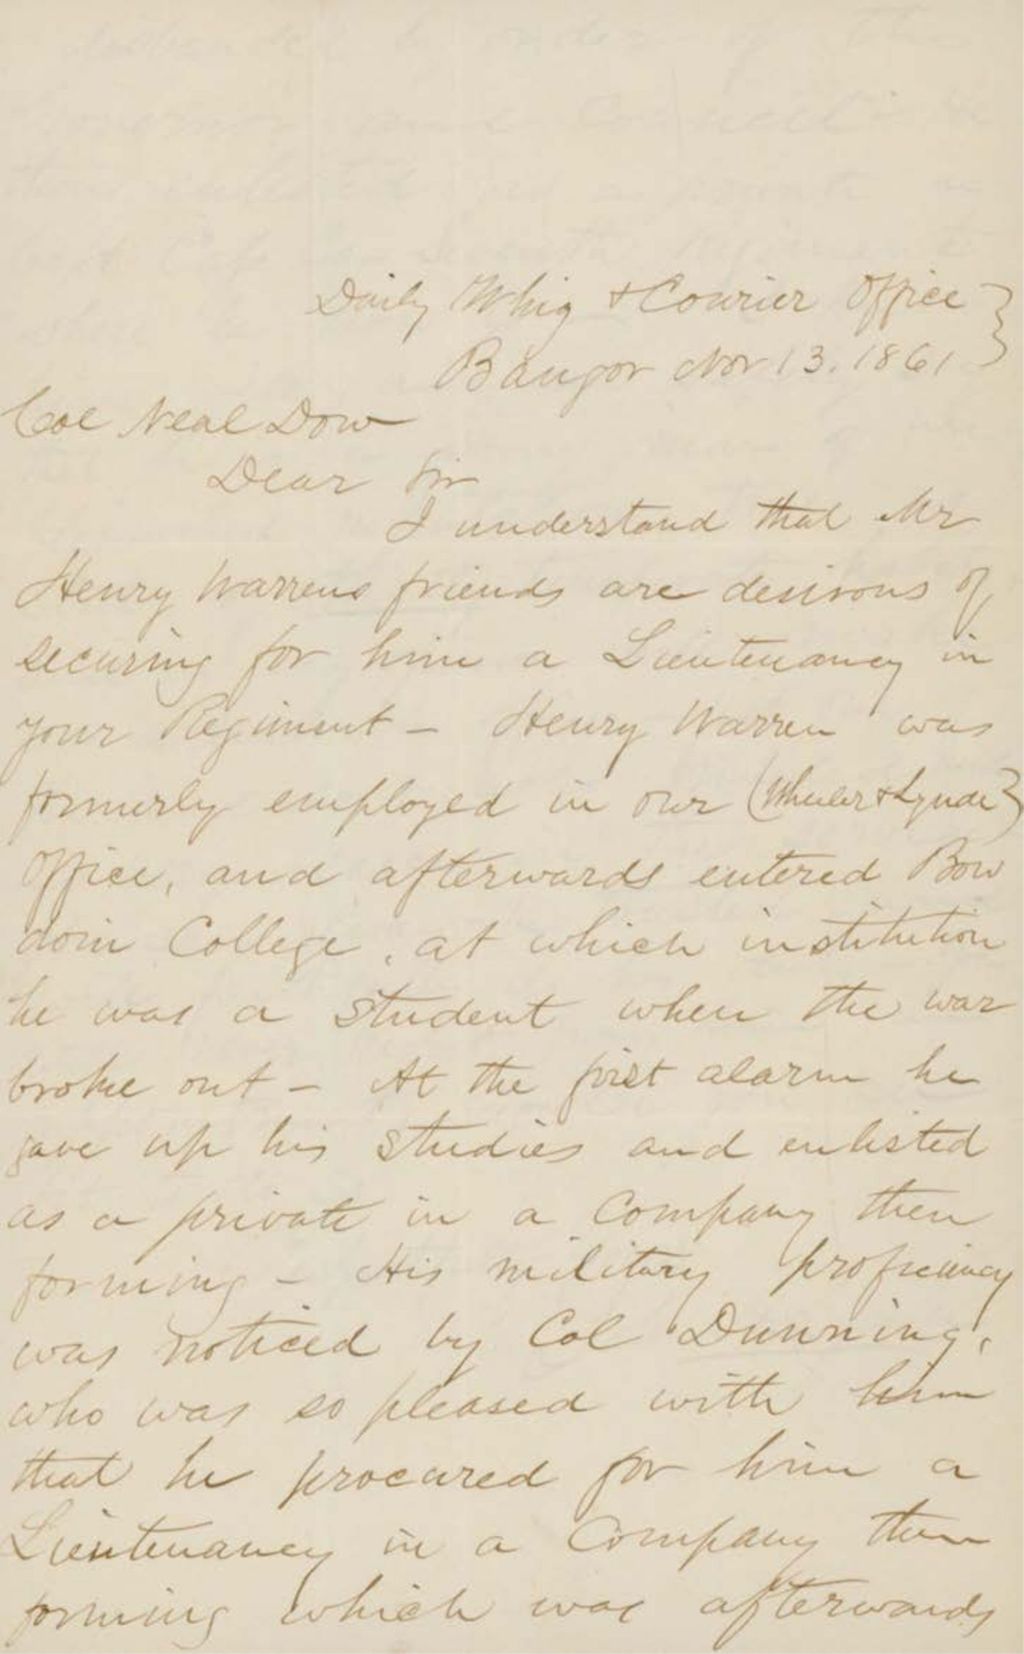 Daily Whig & Courier Office }
Bangor Nov 13. 1861
Col Neal Dow
Dear Sir
I understand that Mr
Henry Warrens friends are desirous of
securing for him a Lieutenancy in
your Regiment - Henry Warren was
formerly employed in our (Wheeler & Lynde)
Office, and afterwards entered Bow
doin College, at which institution
he was a student when the war
broke out - At the first alarm he
gave up his studies and enlisted
as a private in a Company then
forming - His military proficiency
was noticed by Col Dunning,
who was so pleased with him
that he procured for him a
Lieutenancy in a Company then
forming which was afterwards